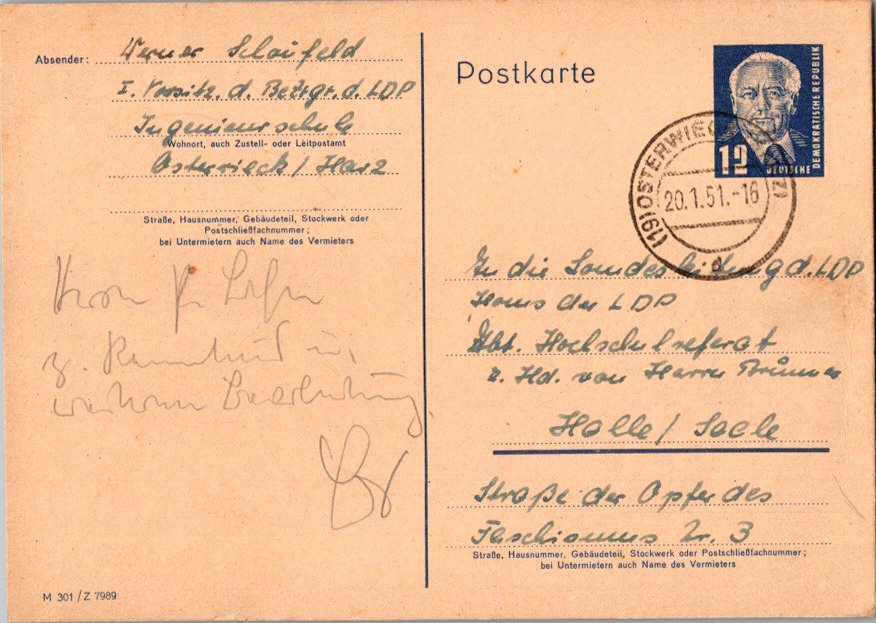 Absender: Werner
I. Vorsitz. d. Betrgr. d. LDP
Ingenieurschule
Wohnort, auch Zustell- oder Leitpostamt
Osterwieck / Harz
Straße, Hausnummer, Gebäudeteil, Stockwerk oder
Postschließfachnummer;
bei Untermietern auch Name des Vermieters
Herrn
z. Kenntnis u.
weiteren Bearbeitung.
M 301/Z 7989
Postkarte
12
DEUTSCHE
DEMOKRATISCHE REPUBLIK
(19) OSTERWIECK
20.1.51.-16
d
An die Landesleitung d. LDP
Haus der LDP
Abt. Hochschulreferat
z. Hd. von Herrn Brünner
Halle / Saale
Straße der Opfer des
Faschismus Nr. 3
Straße, Hausnummer, Gebäudeteil, Stockwerk oder Postschließfachnummer;
bei Untermietern auch Name des Vermieters